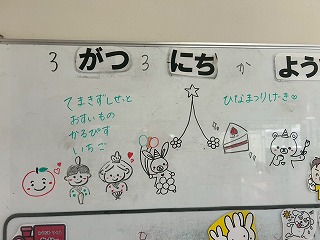 3 がつ 3 にち か よう
てまきずしせっと
おすいもの
かるぴす
いちご
ひなまつりけーき